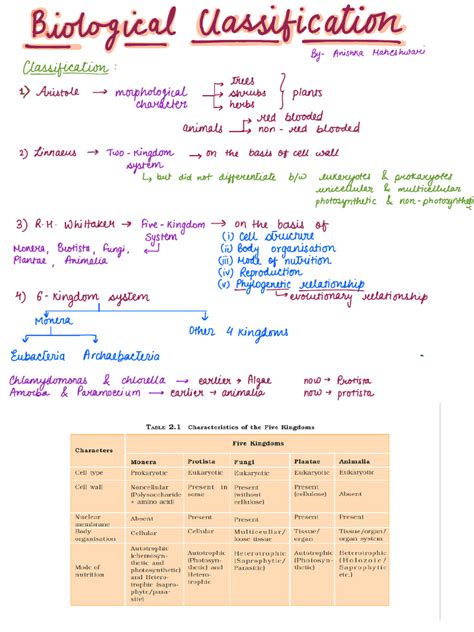 Biological Classification
By- Anishka Maheshwari
Classification :
1) Aristole → morphological character → trees
shrubs } plants
herbs
animals → red blooded
non-red blooded
2) Linnaeus → Two-Kingdom system → on the basis of cell wall
↳ but did not differentiate b/w eukaryotes & prokaryotes
unicellular & multicellular
photosynthetic & non-photosynthetic
3) R.H. Whittaker → Five-Kingdom System → on the basis of
Monera, Protista, Fungi,
Plantae, Animalia
(i) Cell structure
(ii) Body organisation
(iii) Mode of nutrition
(iv) Reproduction
(v) Phylogenetic relationship
↳ evolutionary relationship
4) 6-Kingdom system
Monera
Other 4 Kingdoms
Eubacteria Archaebacteria
Chlamydomonas & chlorella → earlier → Algae now → Protista
Amoeba & Paramoecium → earlier → animalia now → protista
TABLE 2.1 Characteristics of the Five Kingdoms
Characters
Five Kingdoms
Monera Protista Fungi Plantae Animalia
Cell type Prokaryotic Eukaryotic Eukaryotic Eukaryotic Eukaryotic
Cell wall Noncellular (Polysaccharide + amino acid) Present in some Present (without cellulose) Present (cellulose) Absent
Nuclear membrane Absent Present Present Present Present
Body organisation Cellular Cellular Multicellular/ loose tissue Tissue/ organ Tissue/organ/ organ system
Mode of nutrition Autotrophic (chemosynthetic and photosynthetic) and Heterotrophic (saprophytic/parasitic) Autotrophic (Photosynthetic) and Heterotrophic Heterotrophic (Saprophytic/ Parasitic) Autotrophic (Photosynthetic) Heterotrophic (Holozoic/ Saprophytic etc.)